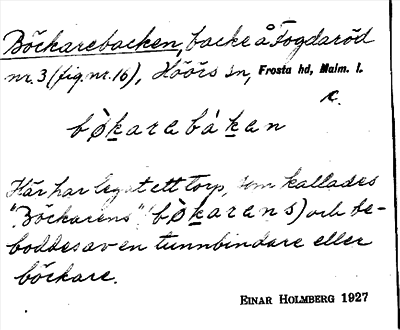 Böckarebacken, backe å Fogdaröd
nr. 3 (fig. nr. 16), Höörs sn, Frosta hd, Malm. l.
bòkarabákan
Här har legat ett torp, som kallades
"Böckarens" (bòkarans) och be-
boddes av en tunnbindare eller
böckare.
EINAR HOLMBERG 1927